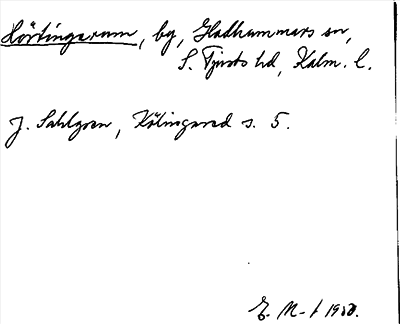 Hörtingerum, by, Gladhammars sn,
S. Tjusts hd, Kalm. l.
J. Sahlgren, Kölingared s. 5.
E. M-t